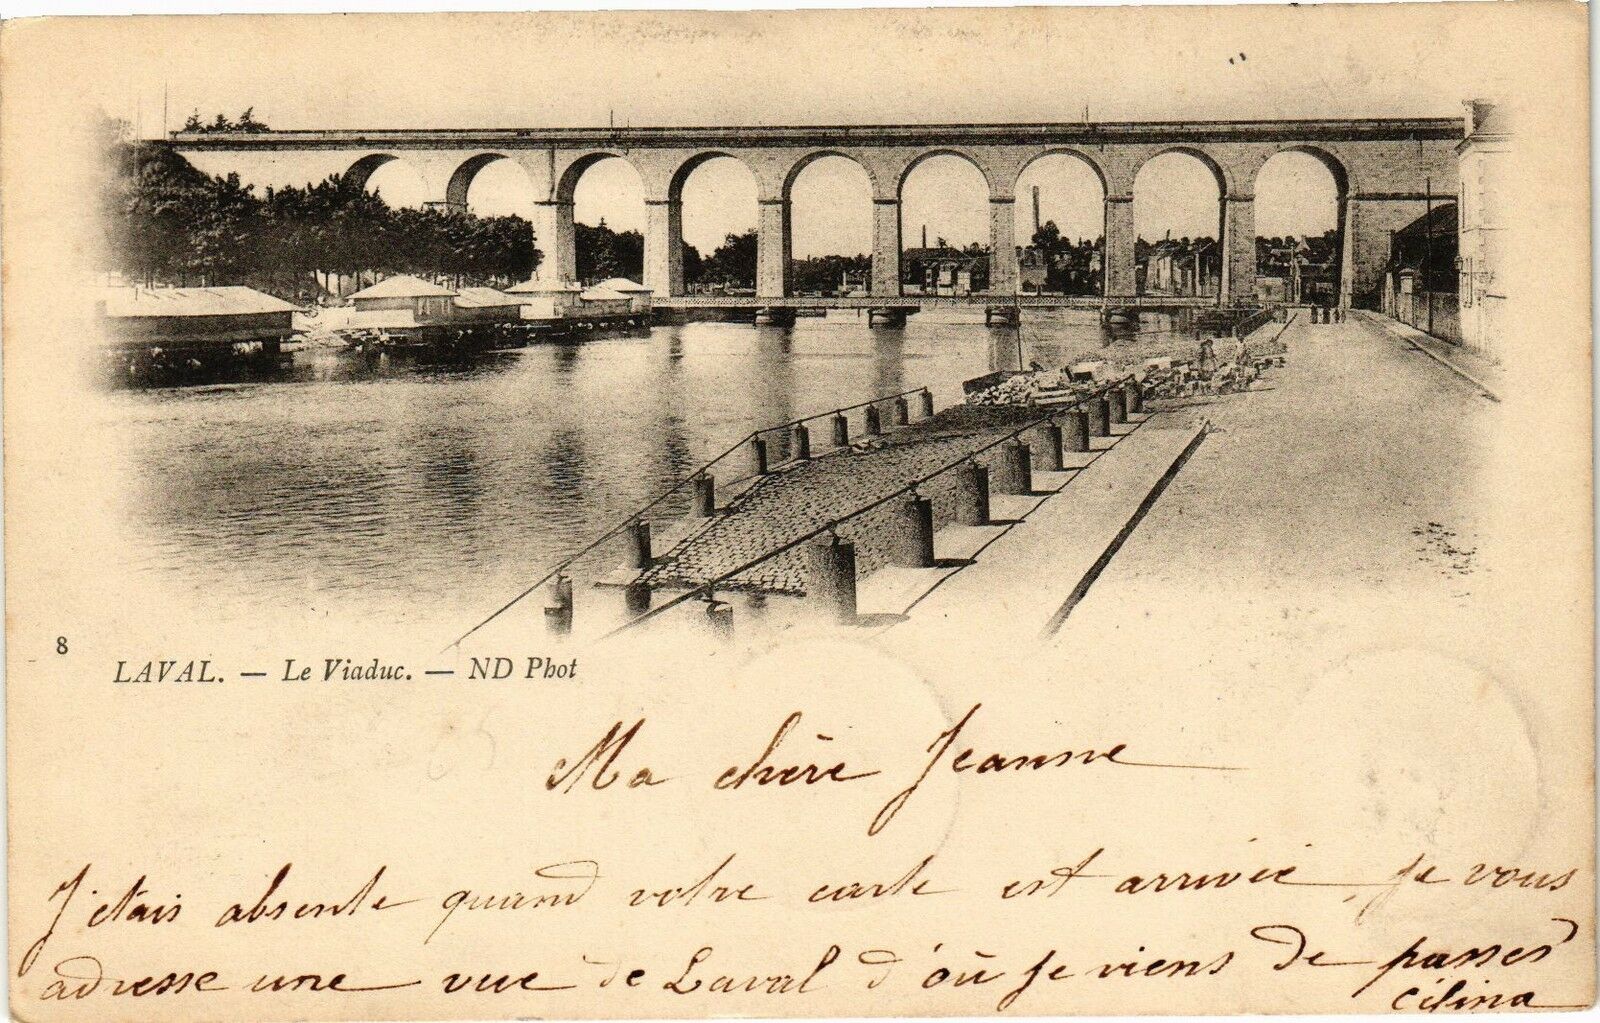 8
LAVAL. — Le Viaduc. — ND Phot
Ma chère Jeanne
J'étais absente quand votre carte est arrivée, je vous
adresse une vue de Laval d'où je viens de passer
Célina